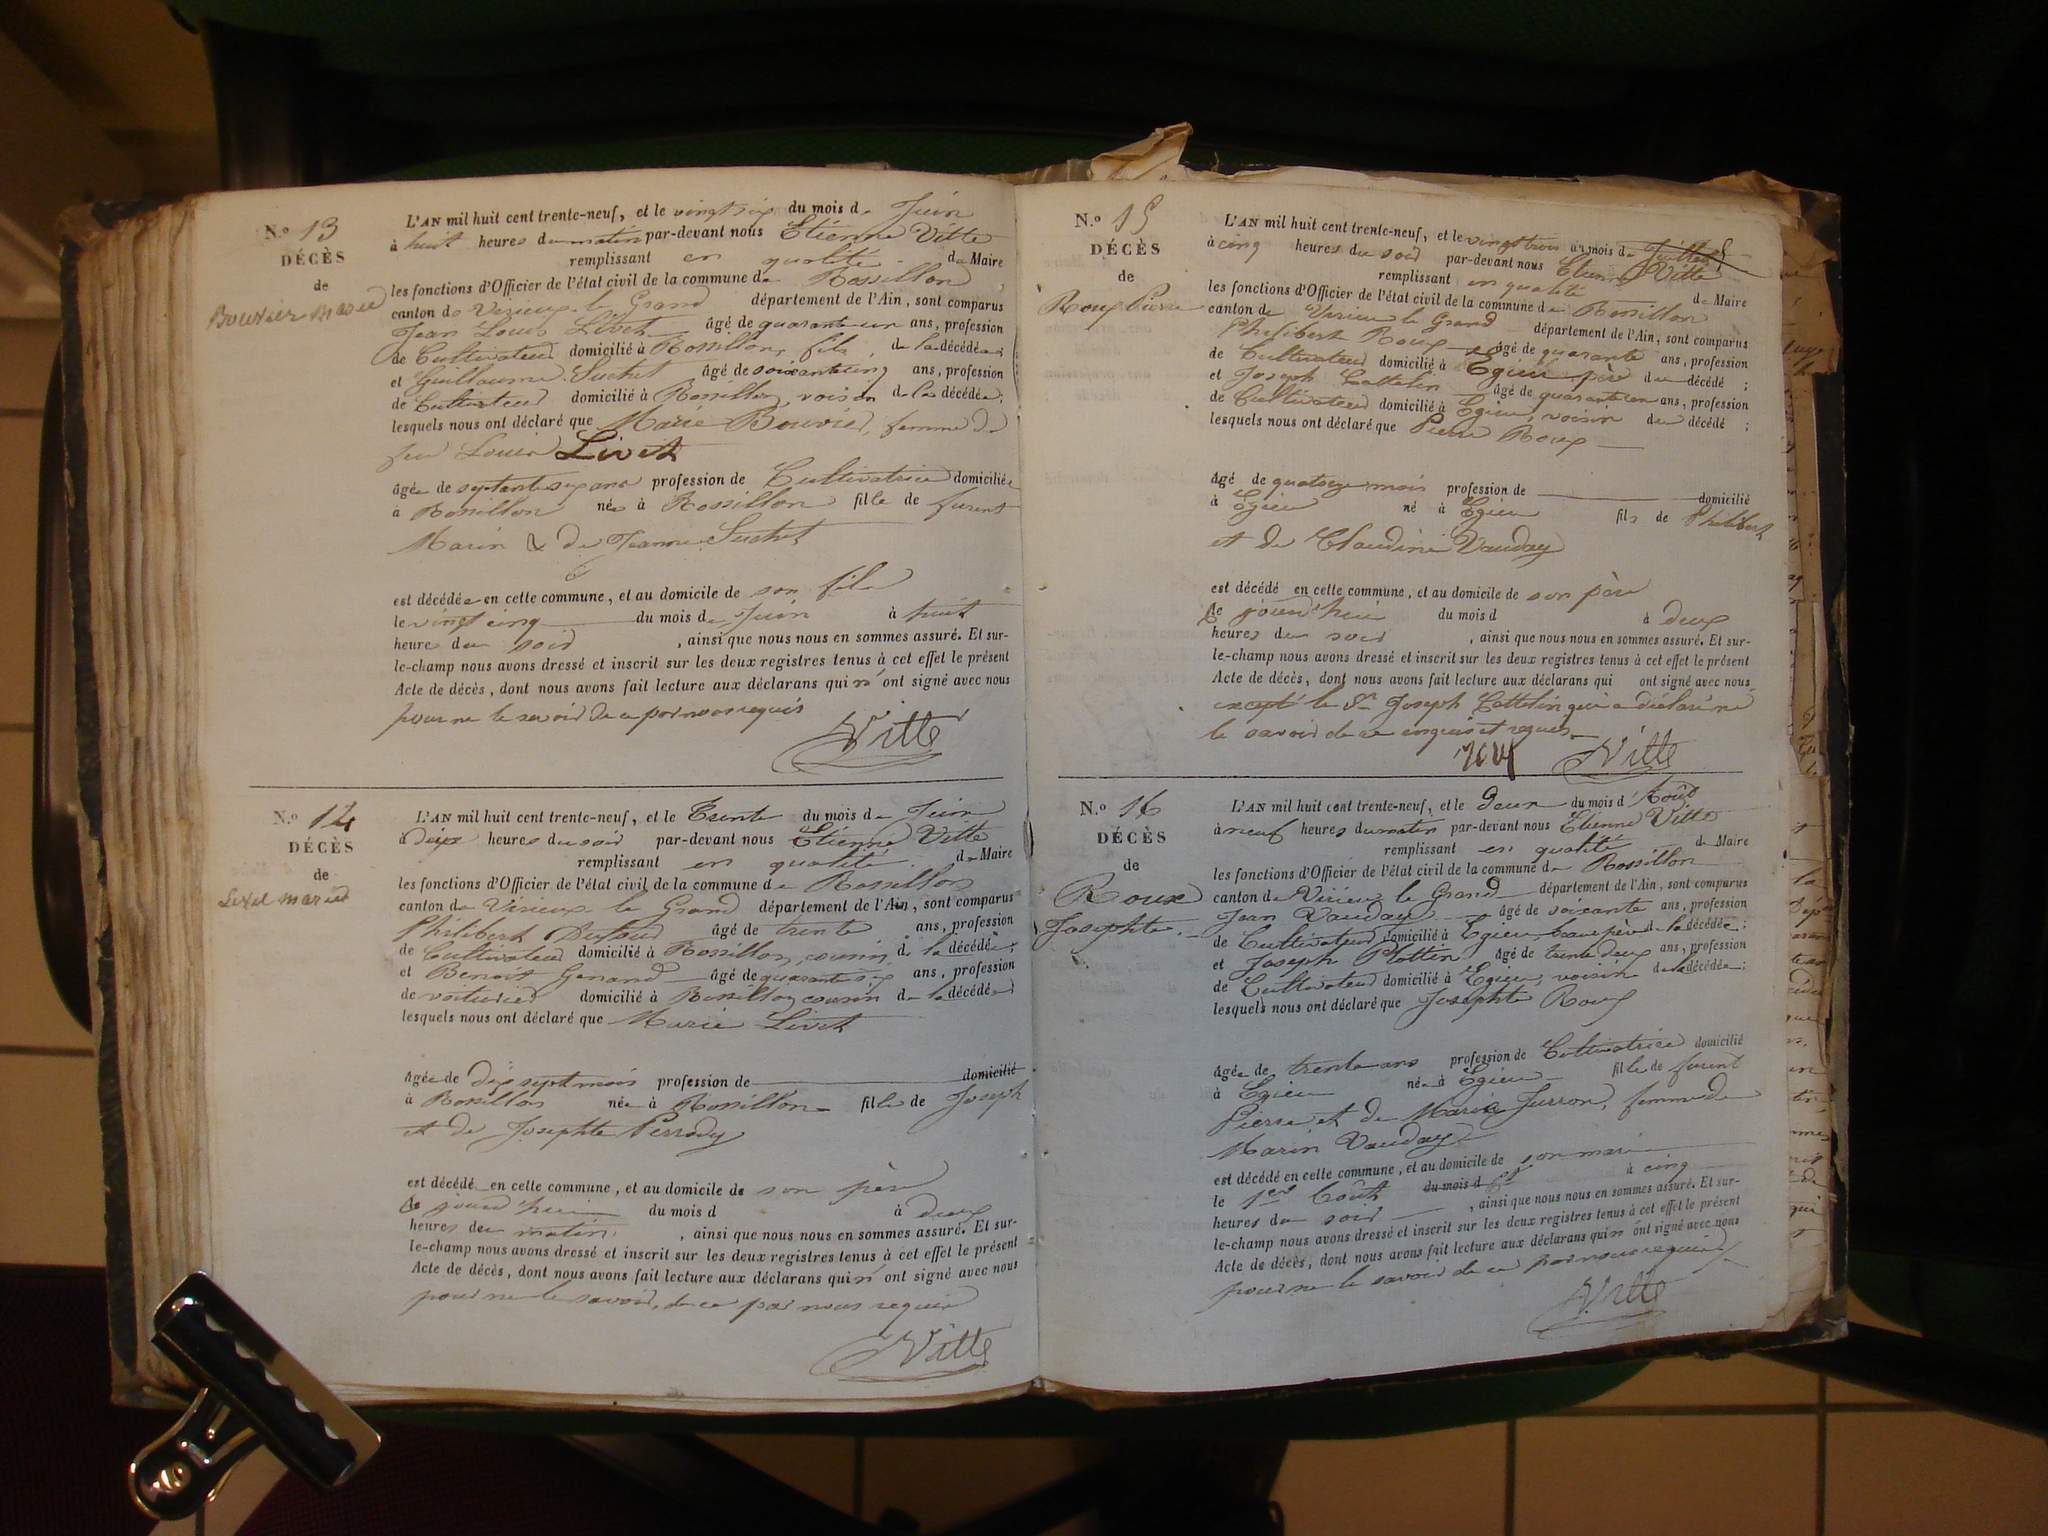 N.o 13
DÉCÈS
de
Bouvier Marie
L'AN mil huit cent trente-neuf, et le vingt six du mois de Juin
à huit heures du matin par-devant nous Etienne Vitte
remplissant en qualité de Maire
les fonctions d'Officier de l'état civil de la commune de Rossillon
canton de Virieux le Grand département de l'Ain, sont comparus
Jean Louis Livet âgé de quarante un ans, profession
de Cultivateur domicilié à Rossillon, fils de la décédée;
et Guillaume Suchet âgé de soixante cinq ans, profession
de Cultivateur domicilié à Rossillon, voisin de la décédée;
lesquels nous ont déclaré que Marie Bouvier, femme de
feu Louis Livet
âgée de septante six ans profession de Cultivatrice domiciliée
à Rossillon née à Rossillon fille de furent
Marin & de Jeanne Suchet
est décédée en cette commune, et au domicile de son fils
le vingt cinq du mois de Juin à huit
heures du soir, ainsi que nous nous en sommes assuré. Et sur-
le-champ nous avons dressé et inscrit sur les deux registres tenus à cet effet le présent
Acte de décès, dont nous avons fait lecture aux déclarans qui n'ont signé avec nous
pour ne le savoir de ce par nous requis
Vitte
N.o 14
DÉCÈS
de
Livet marie
L'AN mil huit cent trente-neuf, et le Trente du mois de Juin
à dix heures du soir par-devant nous Etienne Vitte
remplissant en qualité de Maire
les fonctions d'Officier de l'état civil de la commune de Rossillon
canton de Virieux le Grand département de l'Ain, sont comparus
Philibert Dufour âgé de trente ans, profession
de Cultivateur domicilié à Rossillon, cousin de la décédée;
et Benoit Genand âgé de quarante six ans, profession
de voiturier domicilié à Rossillon cousin de la décédée;
lesquels nous ont déclaré que Marie Livet
âgée de dix sept mois profession de domicilié
à Rossillon née à Rossillon fille de Joseph
et de Josephte Perrody
est décédé en cette commune, et au domicile de son père
Ce jourd'hui du mois d à deux
heures du matin, ainsi que nous nous en sommes assuré. Et sur-
le-champ nous avons dressé et inscrit sur les deux registres tenus à cet effet le présent
Acte de décès, dont nous avons fait lecture aux déclarans qui n'ont signé avec nous
pour ne le savoir, de ce par nous requis
Vitte
N.o 15
DÉCÈS
de
Roux Pierre
L'AN mil huit cent trente-neuf, et le vingt trois du mois de Juillet
à cinq heures du soir par-devant nous Etienne Vitte
remplissant en qualité de Maire
les fonctions d'Officier de l'état civil de la commune de Rossillon
canton de Virieu le Grand département de l'Ain, sont comparus
Philibert Roux âgé de quarante ans, profession
de Cultivateur domicilié à Egieu père du décédé;
et Joseph Cattelin âgé de quarante un ans, profession
de Cultivateur domicilié à Egieu, voisin du décédé;
lesquels nous ont déclaré que Pierre Roux
âgé de quatorze mois profession de domicilié
à Egieu né à Egieu fils de Philibert
et de Claudine Vauday
est décédé en cette commune, et au domicile de son père
Ce jourd'hui du mois d à deux
heures du soir, ainsi que nous nous en sommes assuré. Et sur-
le-champ nous avons dressé et inscrit sur les deux registres tenus à cet effet le présent
Acte de décès, dont nous avons fait lecture aux déclarans qui ont signé avec nous
excepté le Sr Joseph Cattelin qui a déclaré ne
le savoir de ce enquis et requis.
Vitte
N.o 16
DÉCÈS
de
Roux
Josephte.
L'AN mil huit cent trente-neuf, et le Deux du mois d'Août
à neuf heures du matin par-devant nous Etienne Vitte
remplissant en qualité de Maire
les fonctions d'Officier de l'état civil de la commune de Rossillon
canton de Virieux le Grand département de l'Ain, sont comparus
Jean Vauday âgé de soixante ans, profession
de Cultivateur domicilié à Egieu, beau père de la décédée;
et Joseph Plottin âgé de trente deux ans, profession
de Cultivateur domicilié à Egieu, voisin de la décédée;
lesquels nous ont déclaré que Josephte Roux
âgée de trente ans profession de Cultivatrice domicilié
à Egieu née à Egieu fille de furent
Pierre et de Marie Jurron, femme de
Marin Vauday
est décédé en cette commune, et au domicile de son mari
le 1er Août du mois d à cinq
heures du soir, ainsi que nous nous en sommes assuré. Et sur-
le-champ nous avons dressé et inscrit sur les deux registres tenus à cet effet le présent
Acte de décès, dont nous avons fait lecture aux déclarans qui n'ont signé avec nous
pour ne le savoir de ce par nous requis
Vitte